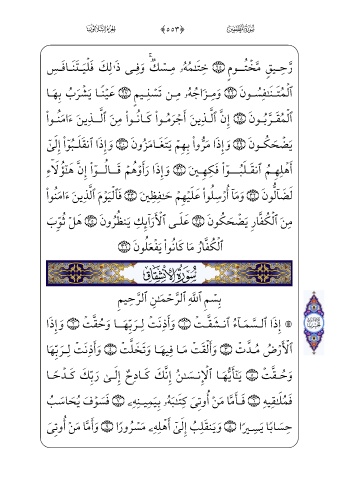 سُورَةُ المُطَفِّفِين ﴿٥٥٣﴾ الجُزْءُ الثَّلَاثُونَ
رَّحِيقٍ مَّخْتُومٍ ٢٥ خِتَٰمُهُۥ مِسْكٌۚ وَفِى ذَٰلِكَ فَلْيَتَنَافَسِ
ٱلْمُتَنَٰفِسُونَ ٢٦ وَمِزَاجُهُۥ مِن تَسْنِيمٍ ٢٧ عَيْنًا يَشْرَبُ بِهَا
ٱلْمُقَرَّبُونَ ٢٨ إِنَّ ٱلَّذِينَ أَجْرَمُوا۟ كَانُوا۟ مِنَ ٱلَّذِينَ ءَامَنُوا۟
يَضْحَكُونَ ٢٩ وَإِذَا مَرُّوا۟ بِهِمْ يَتَغَامَزُونَ ٣٠ وَإِذَا ٱنقَلَبُوٓا۟ إِلَىٰٓ
أَهْلِهِمُ ٱنقَلَبُوا۟ فَكِهِينَ ٣١ وَإِذَا رَأَوْهُمْ قَالُوٓا۟ إِنَّ هَٰٓؤُلَآءِ
لَضَآلُّونَ ٣٢ وَمَآ أُرْسِلُوا۟ عَلَيْهِمْ حَٰفِظِينَ ٣٣ فَٱلْيَوْمَ ٱلَّذِينَ ءَامَنُوا۟
مِنَ ٱلْكُفَّارِ يَضْحَكُونَ ٣٤ عَلَى ٱلْأَرَآئِكِ يَنظُرُونَ ٣٥ هَلْ ثُوِّبَ
ٱلْكُفَّارُ مَا كَانُوا۟ يَفْعَلُونَ ٣٦
سُورَةُ الانشِقَاقِ
بِسْمِ ٱللَّهِ ٱلرَّحْمَٰنِ ٱلرَّحِيمِ
۞ إِذَا ٱلسَّمَآءُ ٱنشَقَّتْ ١ وَأَذِنَتْ لِرَبِّهَا وَحُقَّتْ ٢ وَإِذَا
ٱلْأَرْضُ مُدَّتْ ٣ وَأَلْقَتْ مَا فِيهَا وَتَخَلَّتْ ٤ وَأَذِنَتْ لِرَبِّهَا
وَحُقَّتْ ٥ يَٰٓأَيُّهَا ٱلْإِنسَٰنُ إِنَّكَ كَادِحٌ إِلَىٰ رَبِّكَ كَدْحًا
فَمُلَٰقِيهِ ٦ فَأَمَّا مَنْ أُوتِىَ كِتَٰبَهُۥ بِيَمِينِهِۦ ٧ فَسَوْفَ يُحَاسَبُ
حِسَابًا يَسِيرًا ٨ وَيَنقَلِبُ إِلَىٰٓ أَهْلِهِۦ مَسْرُورًا ٩ وَأَمَّا مَنْ أُوتِىَ